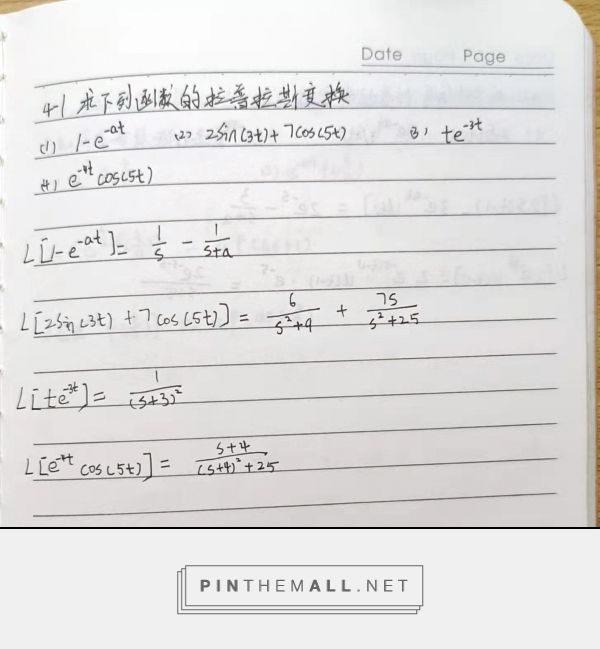 Date Page
4-1 求下列函数的拉普拉斯变换
(1) 1-e^{-at} (2) 2sin(3t)+7cos(5t) (3) te^{-3t}
(4) e^{-4t}cos(5t)
L[1-e^{-at}]= 1/s - 1/(s+a)
L[2sin(3t)+7cos(5t)]= 6/(s²+9) + 7s/(s²+25)
L[te^{-3t}]= 1/(s+3)²
L[e^{-4t}cos(5t)]= (s+4)/((s+4)²+25)
PINTHEMALL.NET